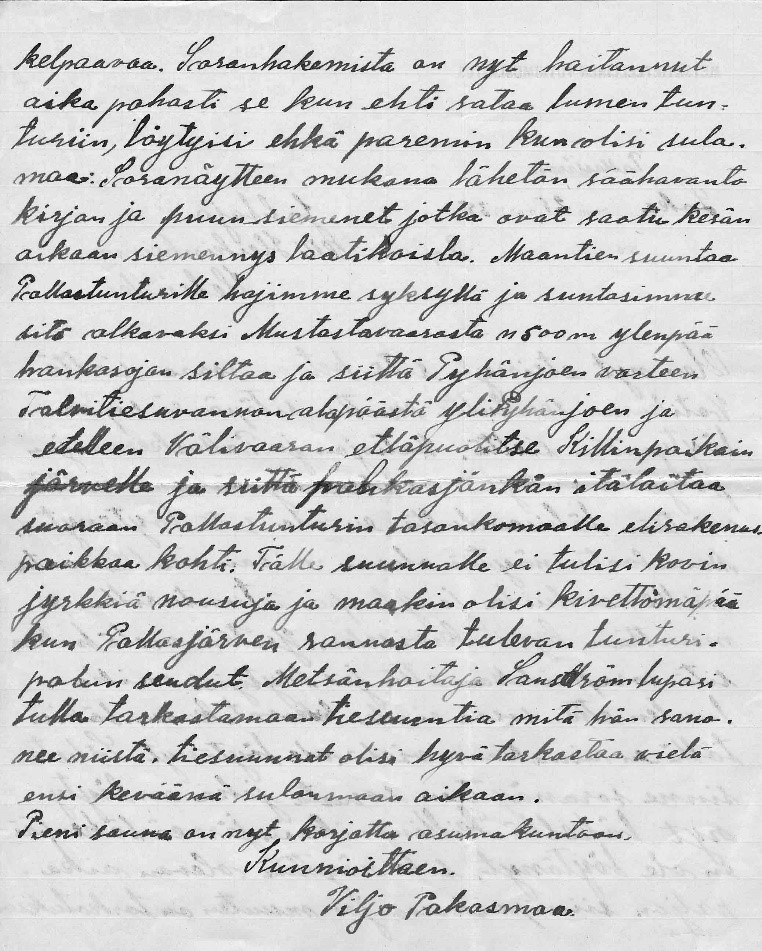 kelpaavaa. Soranhakemista on nyt haitannut
aika pahasti se kun ehti sataa lumen tun-
turiin, löytyisi ehkä paremin kun olisi sula.
maa. Soranäytteen mukana lähetän säähavanto
kirjan ja puun siemenet jotka ovat saatu kesän
aikaan siemennys laatikoista. Maantien suuntaa
Pallastunturille hajimme syksyllä ja suntasimme
sitä alkavaksi Mustastavaarasta n 500 m ylenpää
hankasojan siltaa ja siittä Pyhänjoen varteen
Talvitiesuvannon alapäästä yli Pyhänjoen ja
edelleen Välivaaran etläpuolitse Killinpaikain
järvelle ja siittä itälaitaa
suoraan Pallastunturin tasankomaalle eli rakenus
paikkaa kohti. Tälle suunnalle ei tulisi kovin
jyrkkiä nousuja ja maakin olisi kivettömäpää
kun Pallasjärven rannasta tulevan tunturi-
polun seudut. Metsänhoitaja lupasi
tulla tarkastamaan tiesuuntia mitä hän sano.
nee niistä. tiesuunnat olisi hyvä tarkastaa vielä
ensi keväänä sulanmaan aikaan.
Pieni sauna on nyt korjattu asumakuntoon.
Kunnioittaen.
Viljo Pakasmaa.